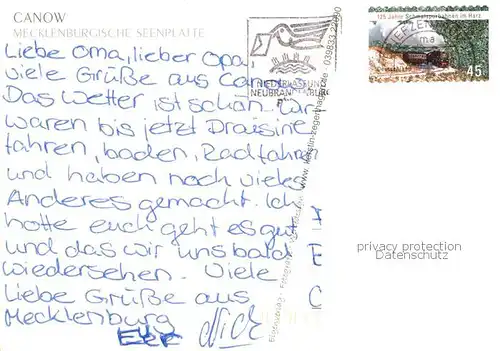 CANOW
MECKLENBURGISCHE SEENPLATTE
Liebe Oma, lieber Opa!
viele Grüße aus Canow.
Das Wetter ist schön. Wir
waren bis jetzt Draisine
fahren, baden, Radfahren
und haben noch vieles
Anderes gemacht. Ich
hoffe euch geht es gut
und das wir uns bald
wiedersehen. Viele
Liebe Grüße aus
Mecklenburg
NIEDERLASSUNG
NEUBRANDENBURG
125 Jahre Schmalspurbahnen im Harz
45
privacy protection
Datenschutz